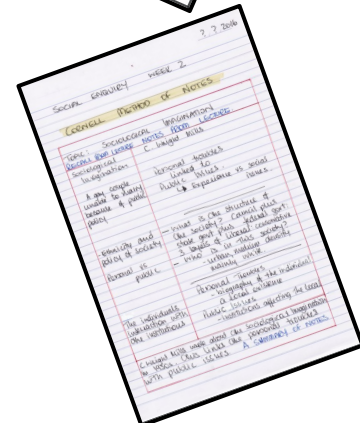 ? ? 2016
SOCIAL ENQUIRY WEEK 2
CORNELL METHOD OF NOTES
TOPIC: SOCIOLOGICAL IMAGINATION
RECALL FROM LECTURE NOTES FROM LECTURE
Sociological Imagination
C. Wright Mills
A gay couple
unable to marry
because of public
policy.
- ethnicity and
policy of society
Personal is
public
- The individuals
interaction with
the institutions
Personal troubles
linked to
Public Issues
↳ Experience is social
issues.
- What is the structure of
the society? Council plus
state govt plus federal govt.
3 levels of liberal conservative
- Who is in this society?
- urban, medium density
mainly white
Personal Troubles
- biography of the individual
a local existence
Public Issues
- institutions affecting the local
C. Wright Mills wrote about the Sociological Imagination
in 1959. This links the personal troubles
with public issues. A SUMMARY OF NOTES